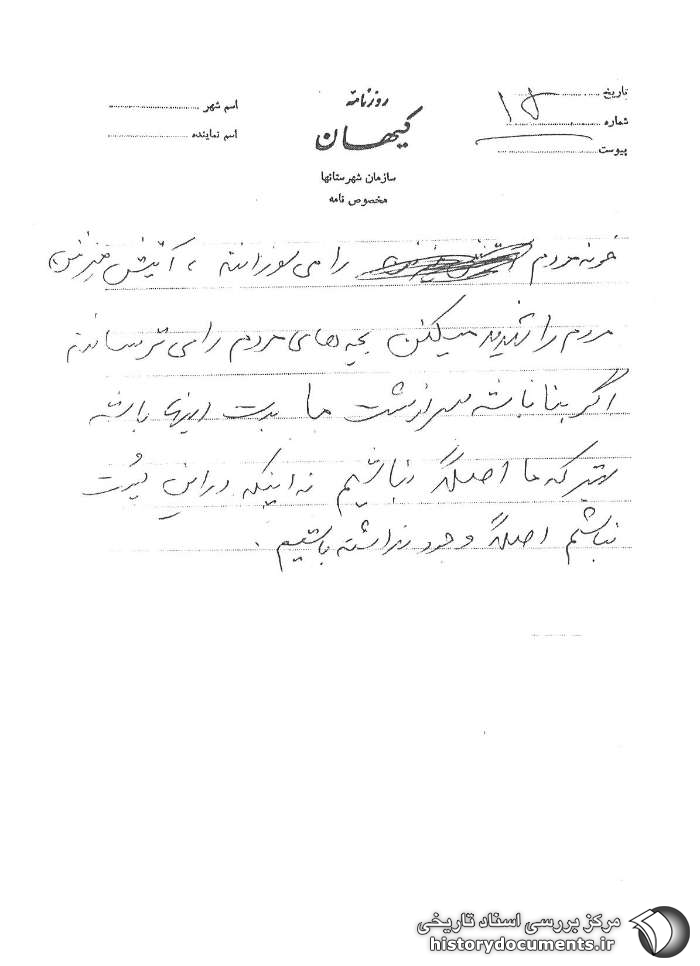 تاریخ
۱۵
شماره
پیوست
روزنامه
کیهان
سازمان شهرستانها
مخصوص نامه
اسم شهر
اسم نماینده
خونه مردم را می سوزانند ، آتیش میزنن
مردم را تهدید میکنن بچه های مردم را می ترسانند
اگر بنا باشه سرنوشت ما بدست اینها باشه
بهتر که ما اصلاً نباشیم نه اینکه در این
نباشیم اصلاً وجود نداشته باشیم .
مرکز بررسی اسناد تاریخی
historydocuments.ir